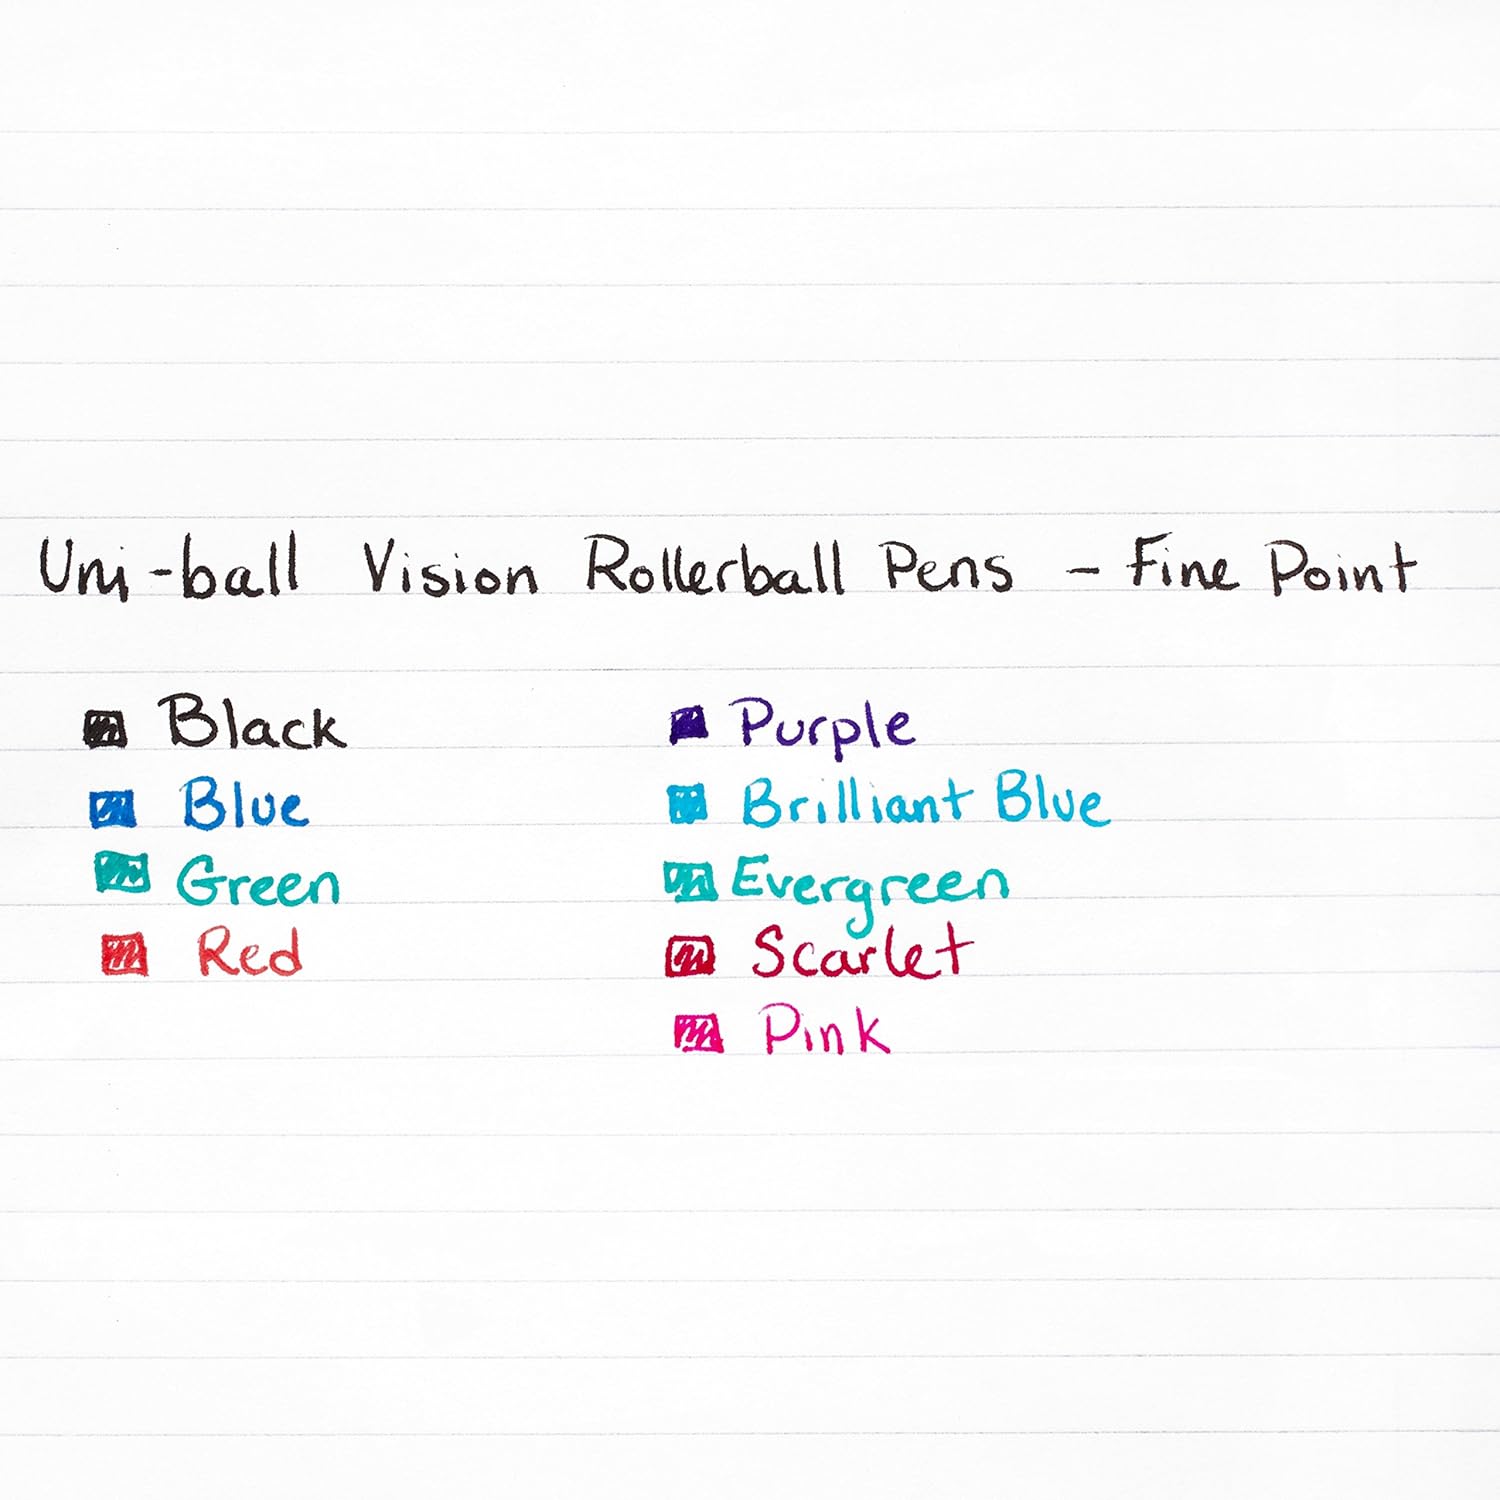 Uni-ball Vision Rollerball Pens - Fine Point
Black
Blue
Green
Red
Purple
Brilliant Blue
Evergreen
Scarlet
Pink